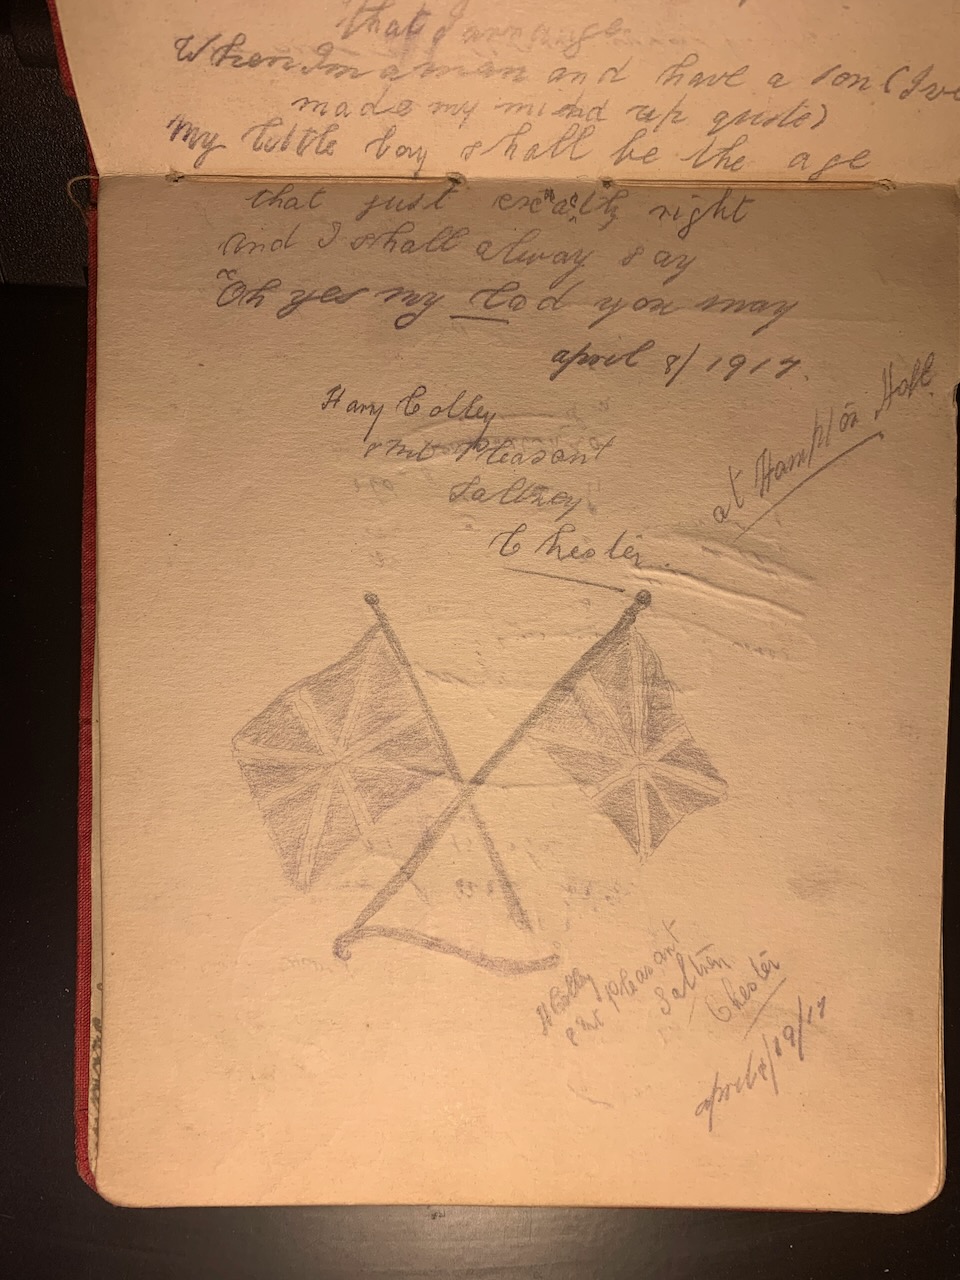 that I am age
When Im a man and have a son (Ive
made my mind up quite)
My little boy shall be the age
that just exactly right
and I shall alway say
"Oh yes my Lad you may
april 8/1917.
at Hampton Hall
Harry Colley
Mt Pleasant
Saltney
Chester.
H Colley
Mt pleasant
Saltney
Chester
april 8/1917